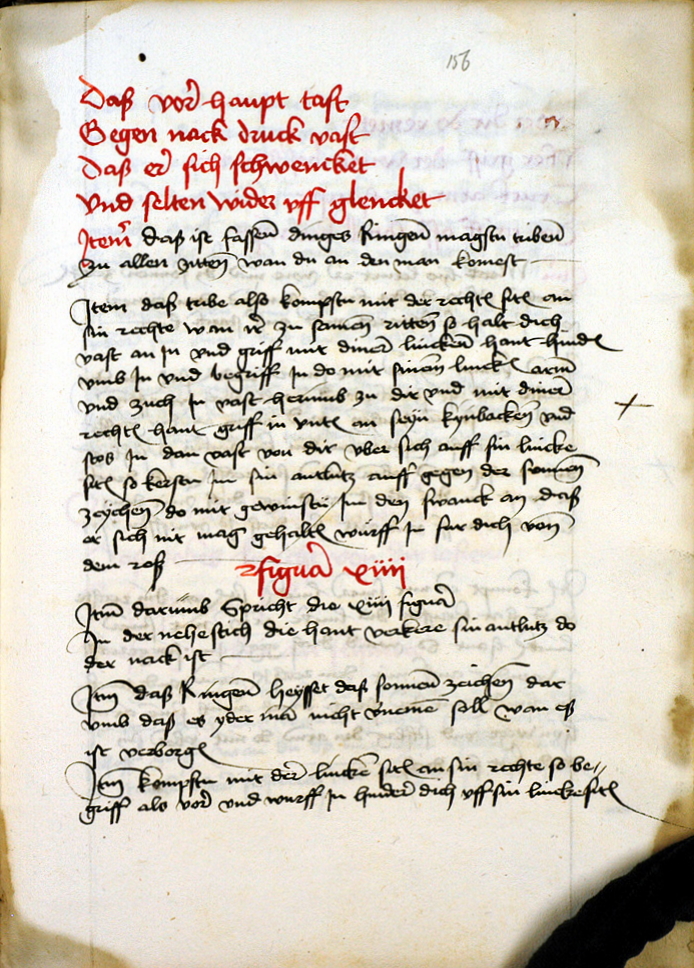 156
Daß vor haupt tast
Gegen nack druck vast
Daß er sich schwencket
Vnd selten wider vff glencket
Item daß ist fassen dinges Ringen magstu triben
Zu allen zitten wan du an den man komest
Item daß tribe also kompstu mit der rechten siten an
sin rechte wan ir zu samen ritten so halt dich
vast an In vnd griff mit diner lincken hant hinden
vmb In vnd begriff In do mit sinen lincken arm
vnd zuch in vast herumb zu dir vnd mit diner
rechten hant griff in vnten an seyn kynbacken vnd
stos In dan vast von dir vber sich auff sin lincke
siten so kerstu im sin antlutz auff gegen der sunnen
zeychen do mit gewinstu Im den swanck an daß
er sich nit mag gehalten wurff In fur dich von
dem roß
figura xiiii
Item darumb Spricht die xiiii figura
In der nehe stich die hant verkere sin antlutz do
der nack ist
Item daß Ringen heysset daß sonnen zeichen dar
vmb daß es yder man nicht vneme soll wan eß
ist verborgen
Item kompstu mit der lincken siten an sin rechte so be
griff als vor vnd wurff In hinder dich vff sin lincke siten